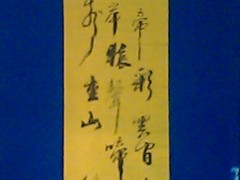 帝彩雲間
岸猿聲啼
重山